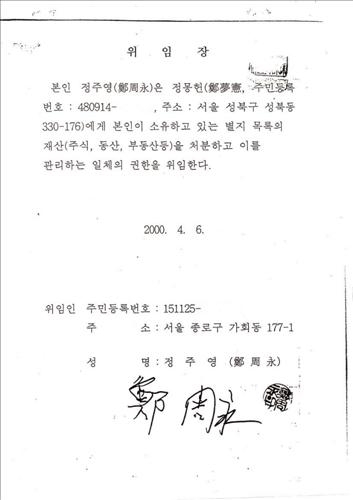 위 임 장
본인 정주영(鄭周永)은 정몽헌(鄭夢憲, 주민등록
번호 : 480914-        , 주소 : 서울 성북구 성북동
330-176)에게 본인이 소유하고 있는 별지 목록의
재산(주식, 동산, 부동산등)을 처분하고 이를
관리하는 일체의 권한을 위임한다.
2000. 4. 6.
위임인 주민등록번호 : 151125-
주 소 : 서울 종로구 가회동 177-1
성 명 : 정 주 영 (鄭 周 永)
鄭 周永